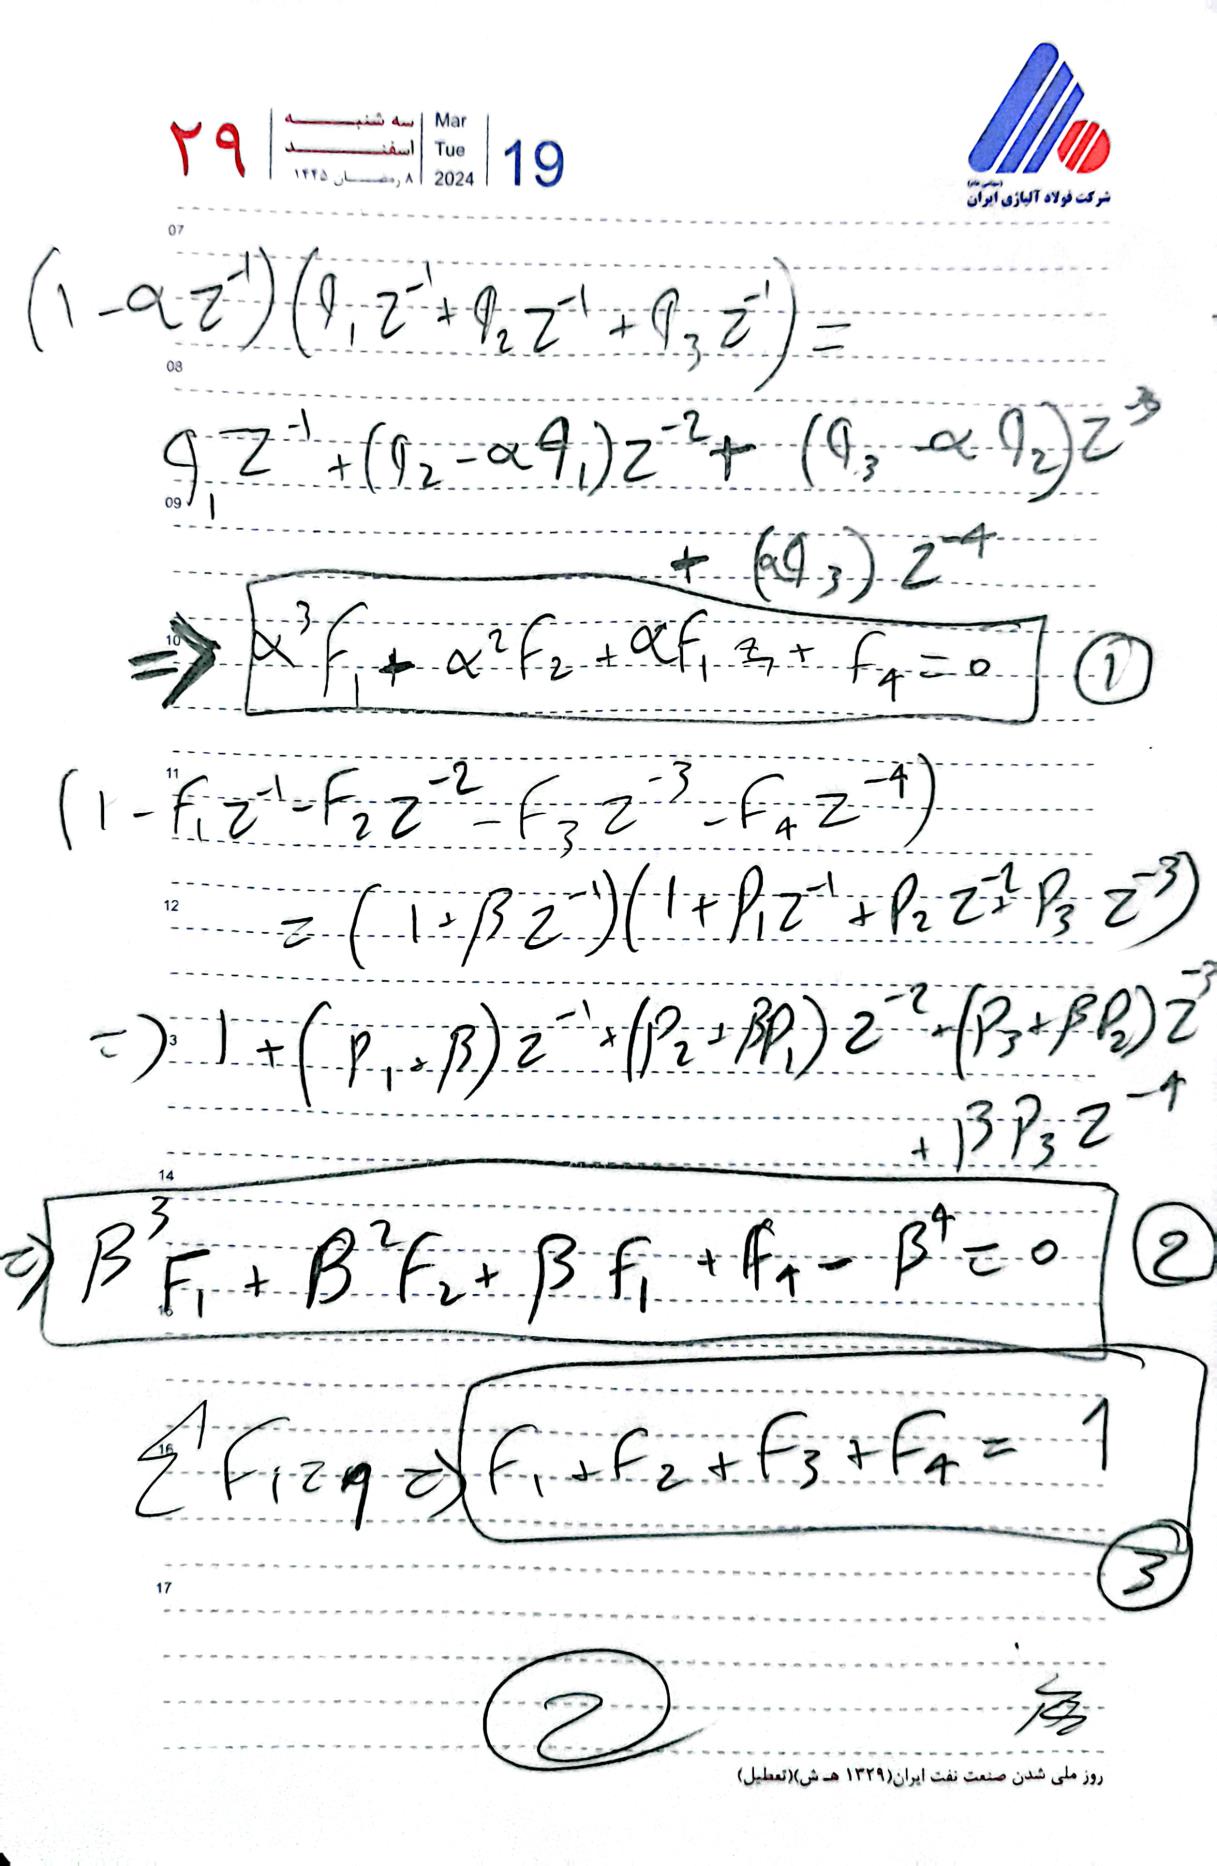 ۲۹
سه شنبه
اسفند
۸ رمضان ۱۴۴۵
Mar
Tue
2024
19
(سهامی عام)
شرکت فولاد آلیاژی ایران
07
(1-αz⁻¹)(q₁z⁻¹+q₂z⁻¹+q₃z⁻¹)=
08
q₁z⁻¹+(q₂-αq₁)z⁻²+(q₃-αq₂)z⁻³
09
+(αq₃)z⁻⁴
10
⇒ α³F₁+α²F₂+αF₁ + F₄=0 ①
11
(1-F₁z⁻¹-F₂z⁻²-F₃z⁻³-F₄z⁻⁴)
12
=(1+βz⁻¹)(1+P₁z⁻¹+P₂z⁻²+P₃z⁻³)
3
⇒ 1+(P₁+β)z⁻¹+(P₂+βP₁)z⁻²+(P₃+βP₂)z⁻³
+βP₃z⁻⁴
14
⇒ β³F₁+β²F₂+βF₁+F₄-β⁴=0 ②
16
F₁+F₂+F₃+F₄=1
③
17
2
روز ملی شدن صنعت نفت ایران(۱۳۲۹ هـ ش)(تعطیل)